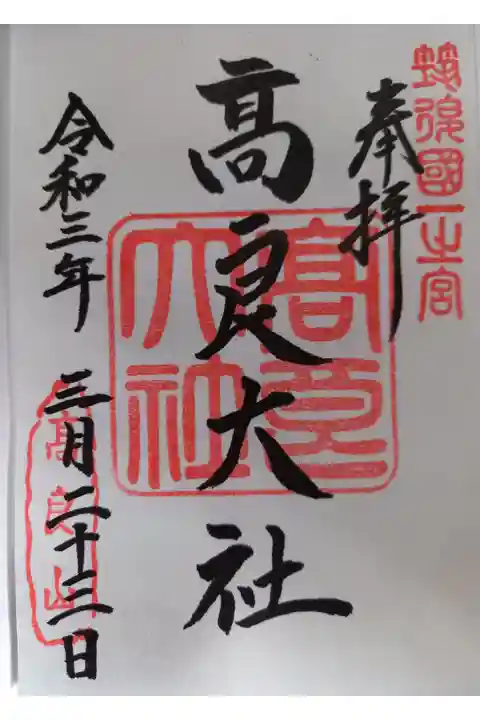 筑後國一之宮
奉拝
髙良大社
髙良大社
令和三年
三月二十三日
高良山